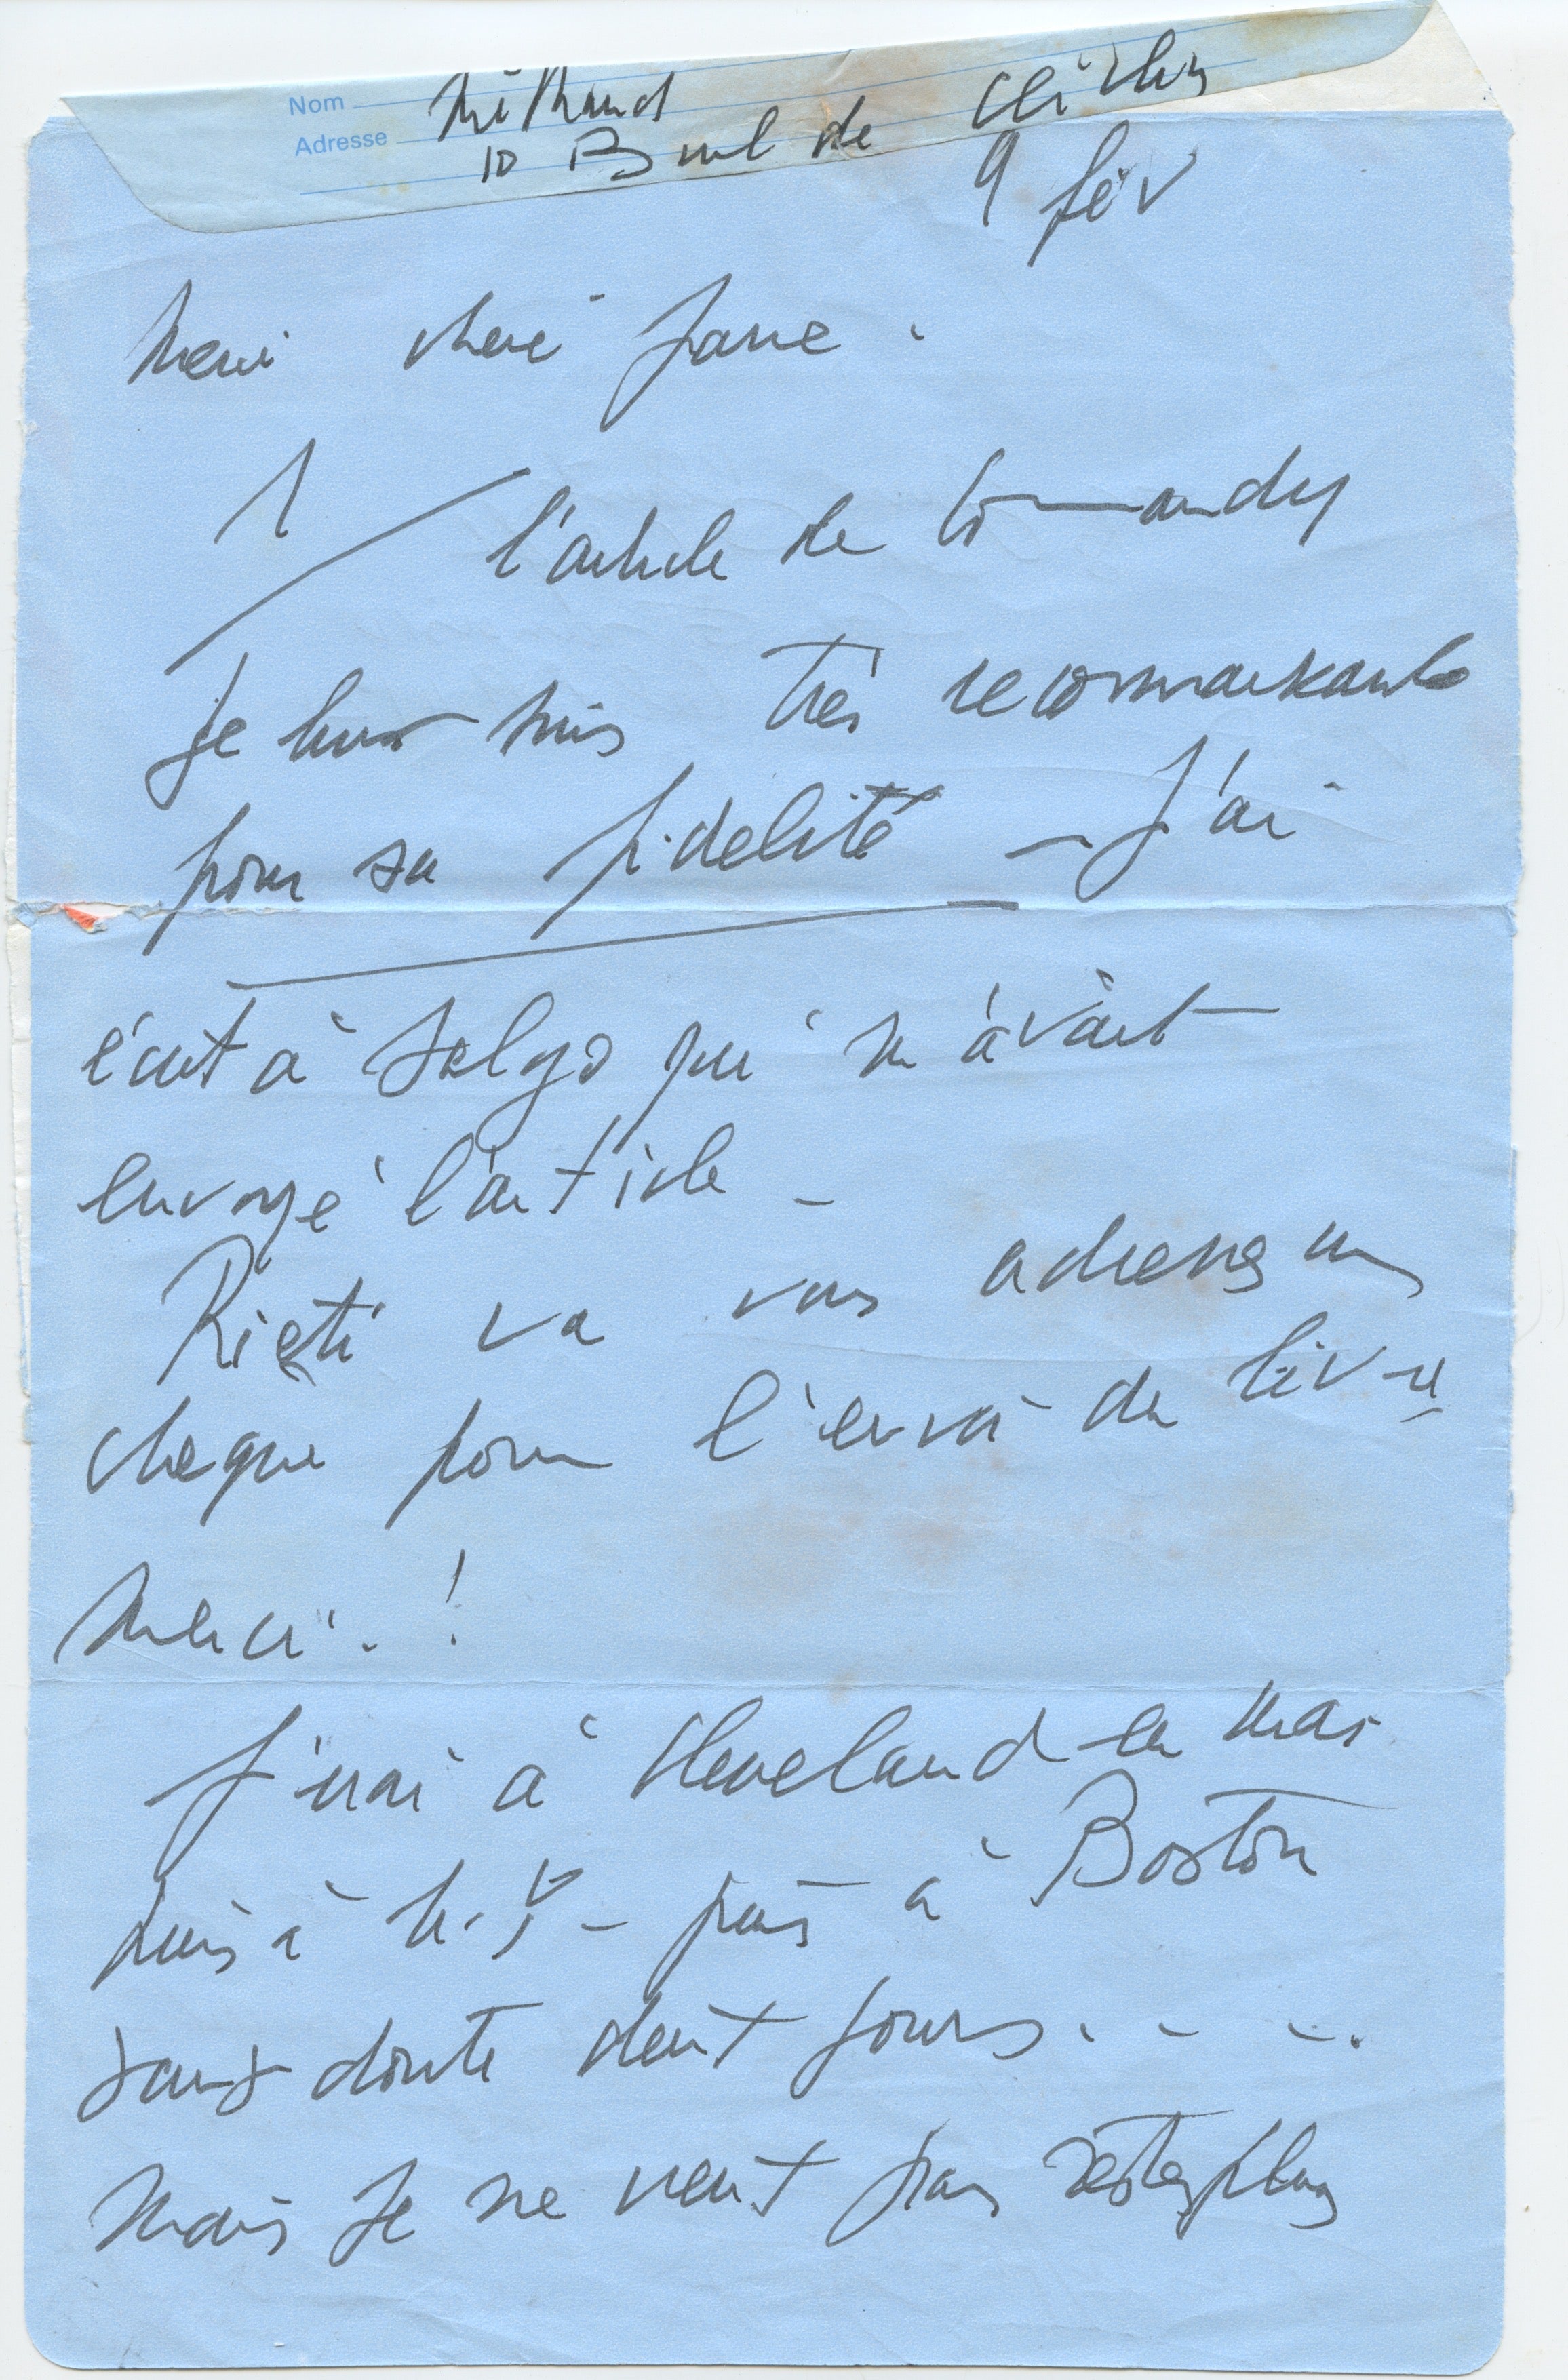 Nom Milhaud
Adresse 10 Boul de Clichy
9 fév
Merci chère Jane.
1/ l'article de
Je lui suis très reconnaissante
pour sa fidélité – J'ai
écrit à Salgo qui m'avait
envoyé l'article –
Rieti va vous adresser un
cheque pour l'envoi du livre
Merci. !
J'irai à Cleveland en mai
puis à N.Y – puis à Boston
sans doute deux jours. . . .
Mais je ne veux pas rester plus